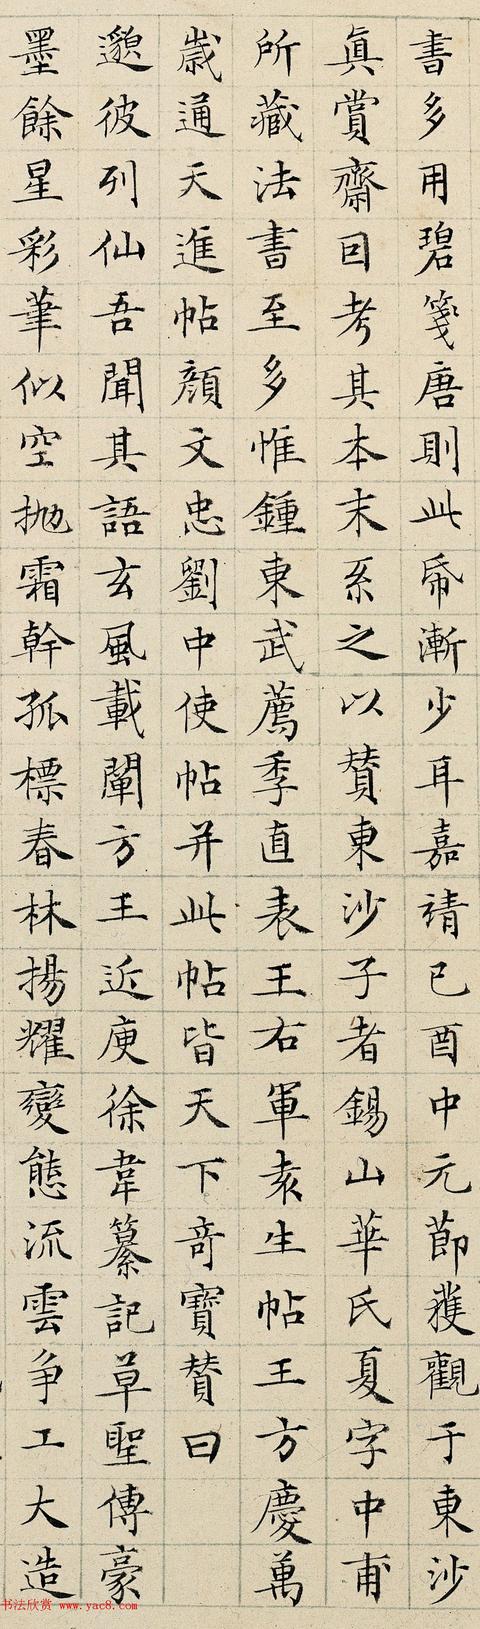 書多用碧箋唐則此帋漸少耳嘉靖己酉中元節獲觀于東沙
真賞齋因考其本末系之以賛東沙子者錫山華氏夏字中甫
所藏法書至多惟鍾東武薦季直表王右軍袁生帖王方慶萬
歲通天進帖顏文忠劉中使帖并此帖皆天下奇寶賛曰
邈彼列仙吾聞其語玄風載闡方王近庾徐韋纂記草聖傳豪
墨餘星彩筆似空拋霜幹孤標春林揚耀變態流雲爭工大造
书法欣赏 www.yac8.com